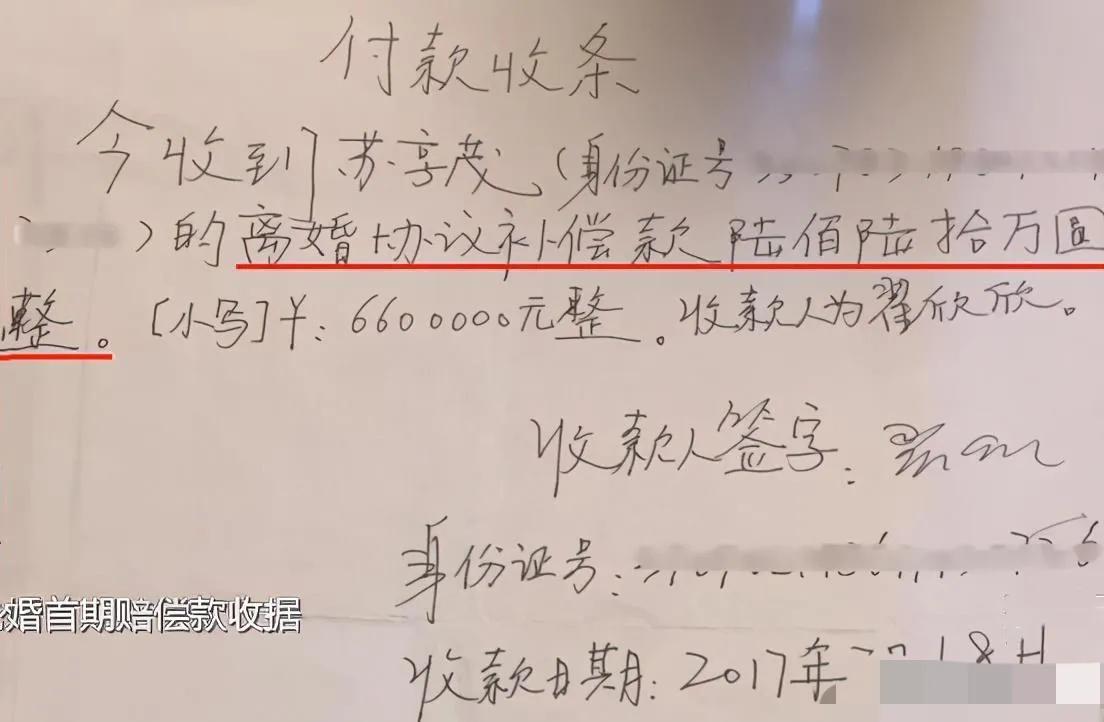 付款收条
今收到苏享茂，（身份证号
）的离婚协议补偿款陆佰陆拾万圆
整。[小写]￥：6600000元整。收款人为翟欣欣。
收款人签字：
身份证号：
婚首期赔偿款收据
收款日期：2017年